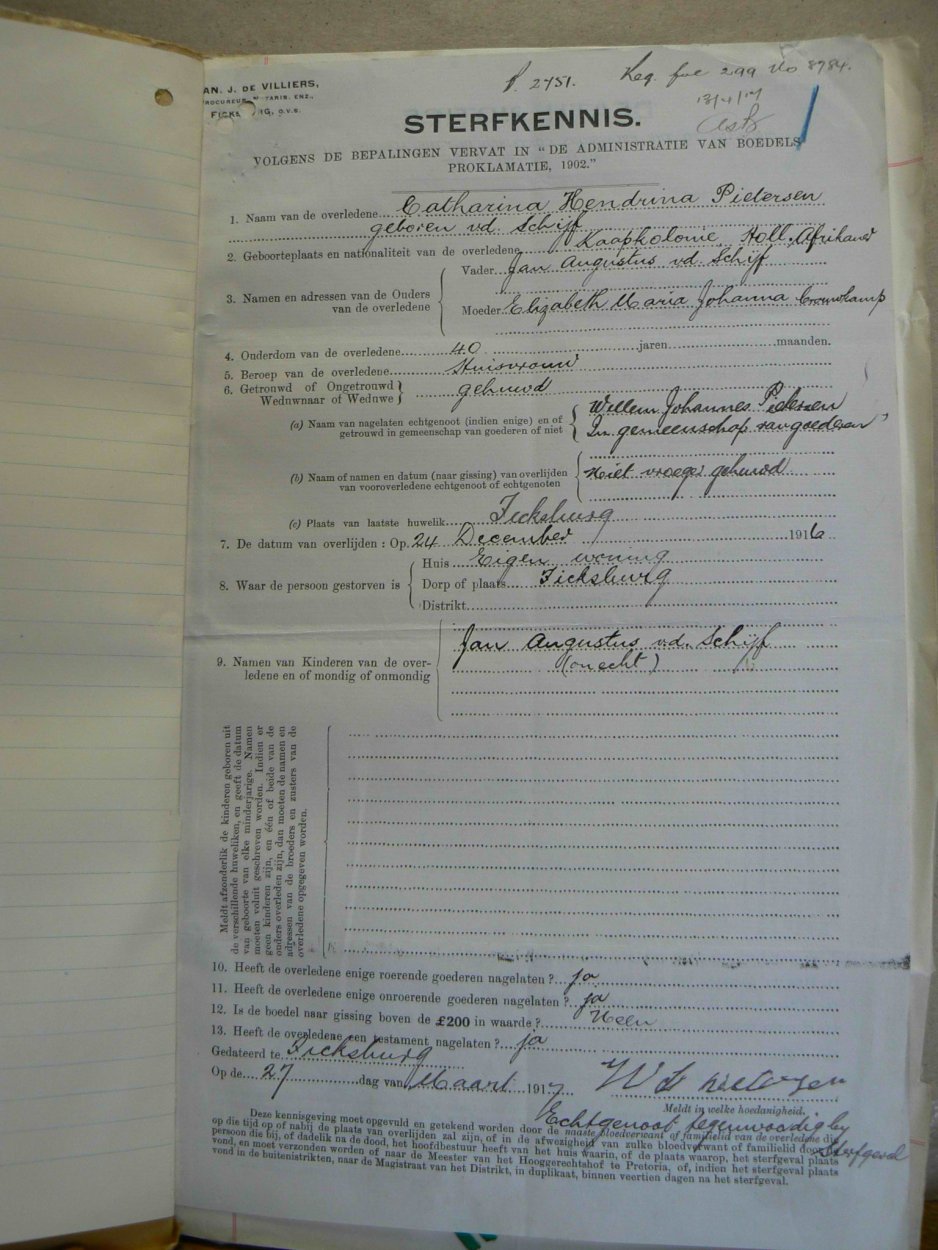 AN. J. DE VILLIERS,
PROCUREUR, NOTARIS, ENZ.,
FICKSBURG, O.V.S.
p. 2751. Reg. fol 299 No 8984.
13/4/17
STERFKENNIS.
VOLGENS DE BEPALINGEN VERVAT IN "DE ADMINISTRATIE VAN BOEDELS
PROKLAMATIE, 1902."
1. Naam van de overledene Catharina Hendrina Pietersen
geboren vd Schijf
2. Geboorteplaats en nationaliteit van de overledene Kaapkolonie Holl. Afrikaner
3. Namen en adressen van de Ouders van de overledene
Vader Jan Augustus vd. Schijf
Moeder Elizabeth Maria Johanna
4. Onderdom van de overledene 40 jaren maanden.
5. Beroep van de overledene Huisvrouw
6. Getrouwd of Ongetrouwd
Weduwnaar of Weduwe } gehuwd
(a) Naam van nagelaten echtgenoot (indien enige) en of
getrouwd in gemeenschap van goederen of niet
Willem Johannes Pietersen
In gemeenschap van goederen
(b) Naam of namen en datum (naar gissing) van overlijden
van vooroverledene echtgenoot of echtgenoten
Niet vroeger gehuwd
(c) Plaats van laatste huwelik Ficksburg
7. De datum van overlijden : Op 24 December 1916
8. Waar de persoon gestorven is
Huis Eigen woning
Dorp of plaats Ficksburg
Distrikt
9. Namen van Kinderen van de over-
ledene en of mondig of onmondig
Jan Augustus v.d. Schijf
(onecht)
Meldt afzonderlik de kinderen geboren uit
de verschillende huweliken, en geeft de datum
van geboorte van elke minderjarige. Namen
moeten voluit geschreven worden. Indien er
geen kinderen zijn, en één of beide van de
ouders overleden zijn, dan moeten de namen en
adressen van de broeders en zusters van de
overledene opgegeven worden.
10. Heeft de overledene enige roerende goederen nagelaten ? ja
11. Heeft de overledene enige onroerende goederen nagelaten ? ja
12. Is de boedel naar gissing boven de £200 in waarde ? Neen
13. Heeft de overledene een testament nagelaten ? ja
Gedateerd te Ficksburg
Op de 27 dag van Maart 1917
Meldt in welke hoedanigheid.
Echtgenoot tegenwoordig by
sterfgeval
Deze kennisgeving moet opgevuld en getekend worden door de naaste bloedverwant of familielid van de overledene die
op die tijd op of nabij de plaats van overlijden zal zijn, of in de afwezigheid van zulke bloedverwant of familielid door de
persoon die bij, of dadelik na de dood, het hoofdbestuur heeft van het huis waarin, of de plaats waarop, het sterfgeval plaats
vond, en moet verzonden worden of naar de Meester van het Hooggerechtshof te Pretoria, of, indien het sterfgeval plaats
vond in de buitenistrikten, naar de Magistraat van het Distrikt, in duplikaat, binnen veertien dagen na het sterfgeval.